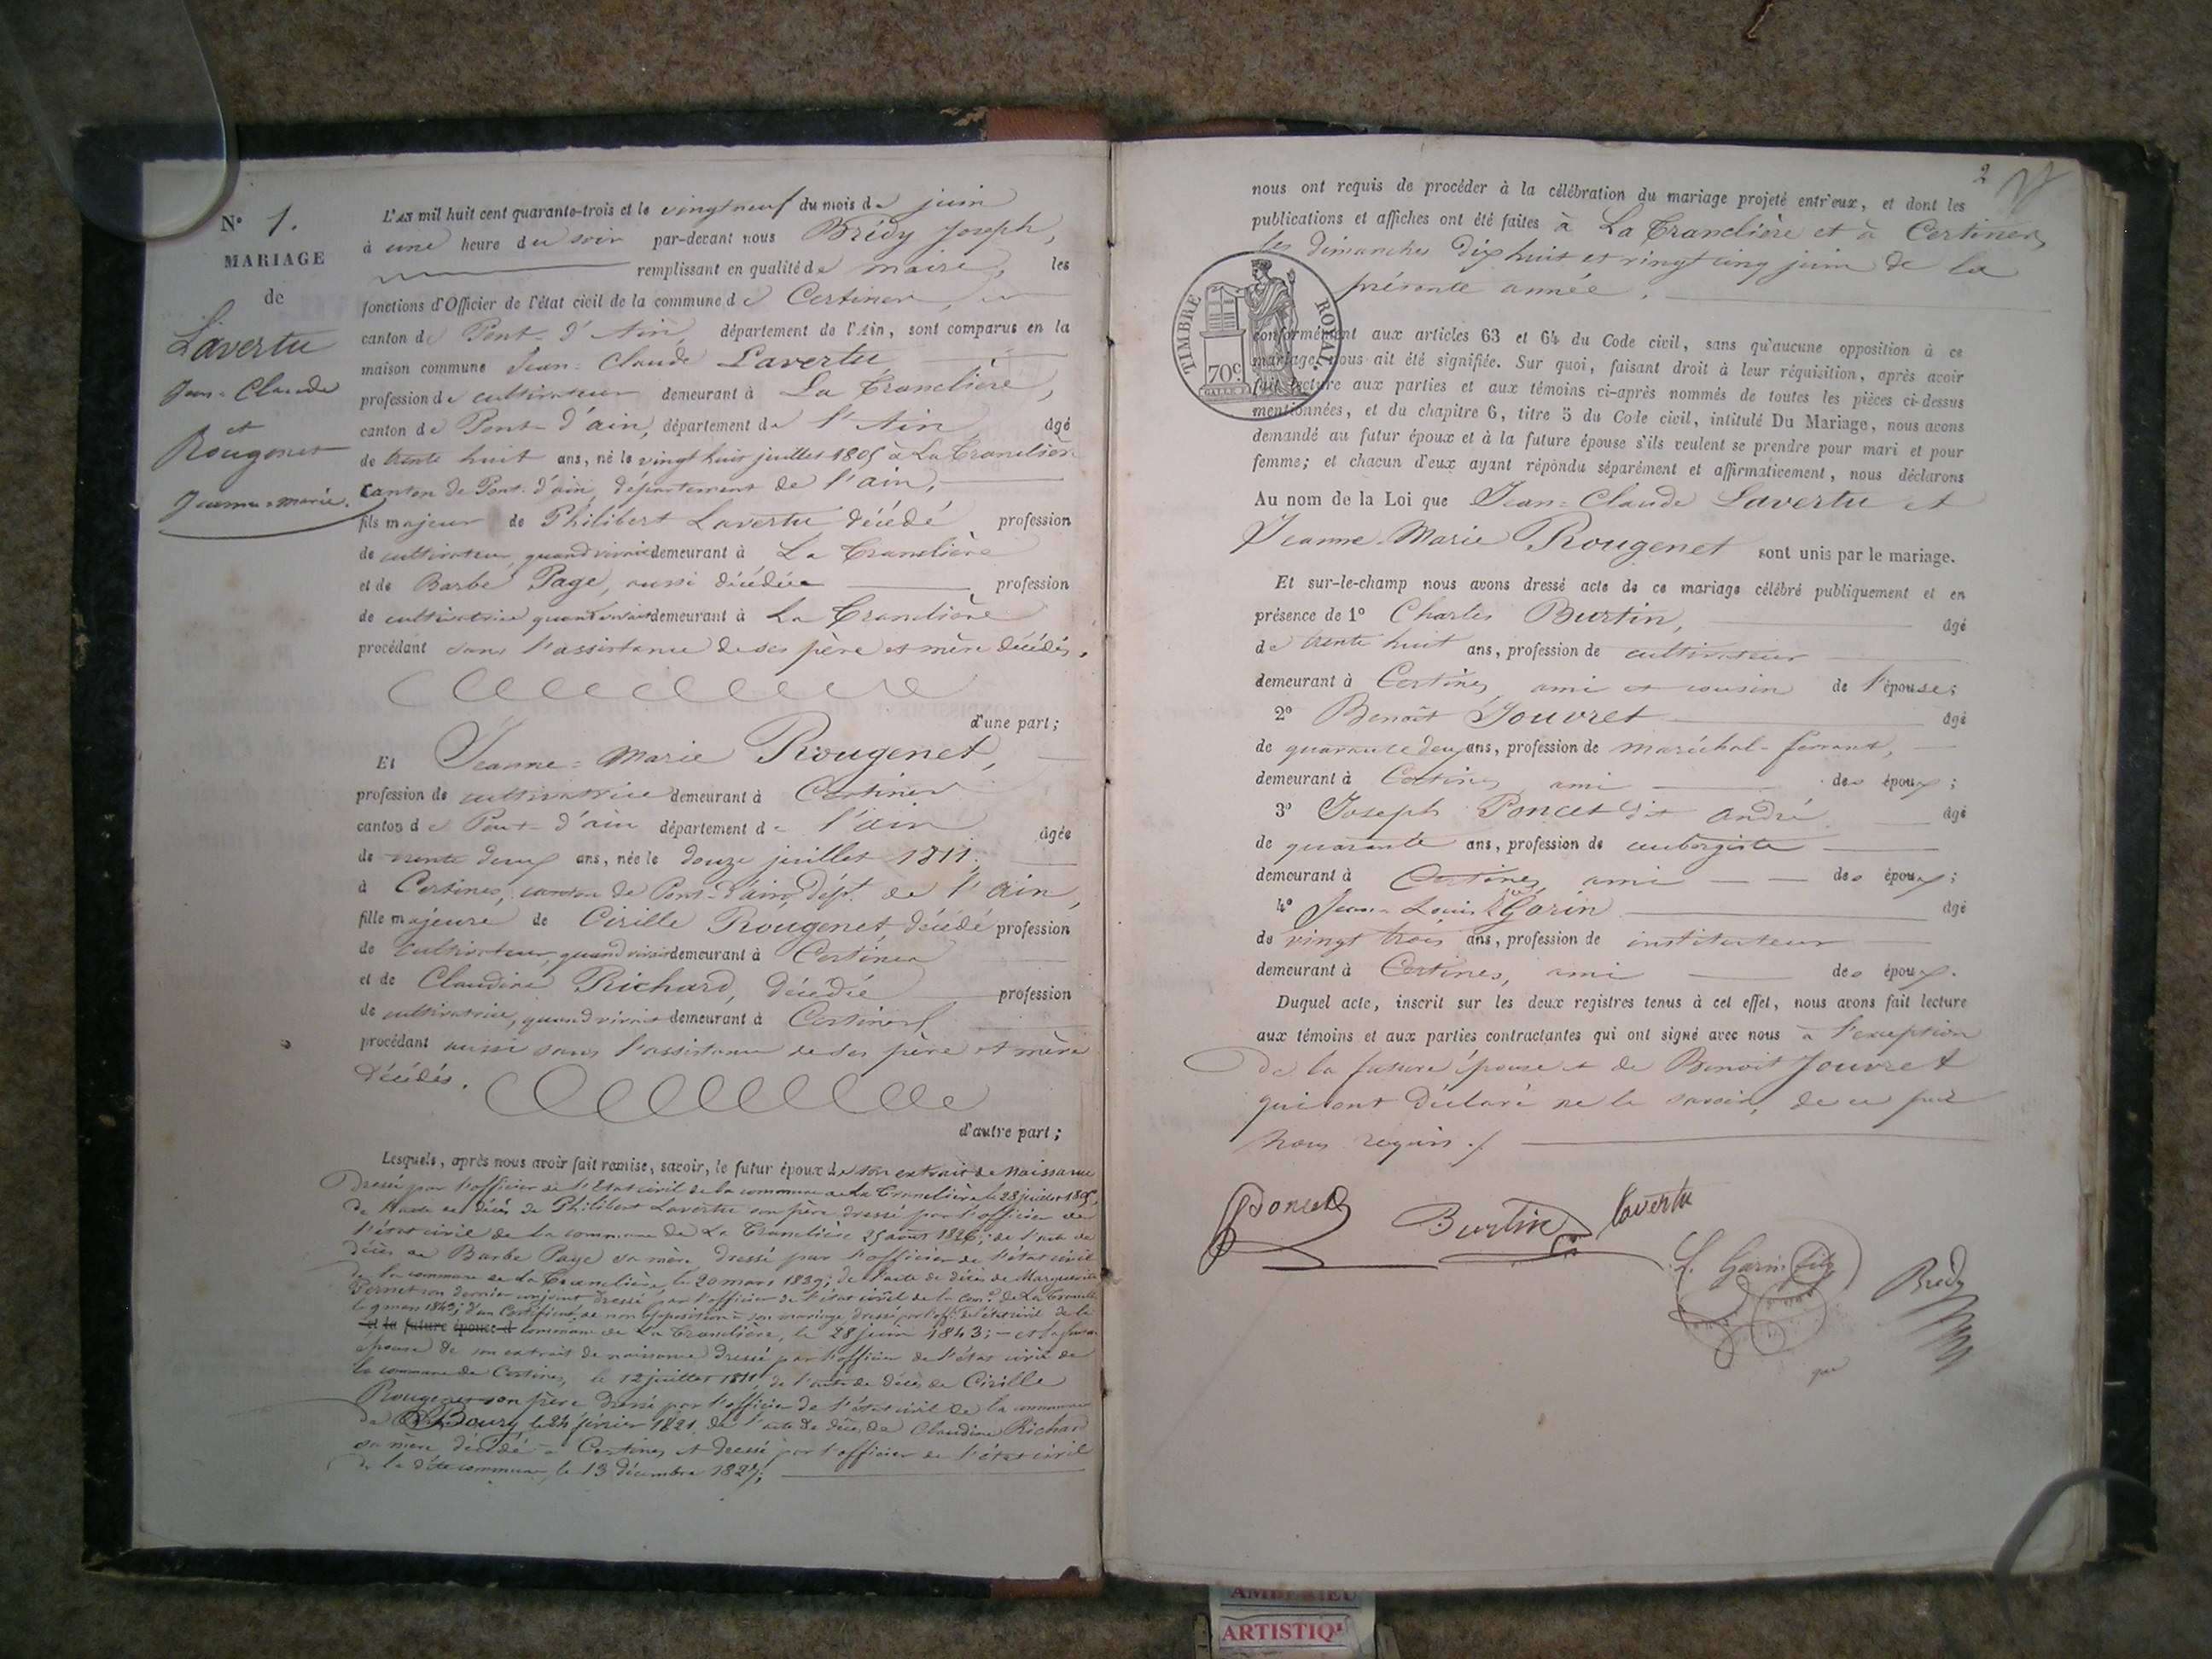 N° 1.
MARIAGE
de
Lavertu
Jean-Claude
et
Rougenet
Jeanne-marie.
L'AN mil huit cent quarante-trois et le vingt neuf du mois de juin
à une heure du soir par-devant nous Brédy Joseph,
remplissant en qualité de maire, les
fonctions d'Officier de l'état civil de la commune de Certines,
canton de Pont-d'Ain, département de l'Ain, sont comparus en la
maison commune Jean-Claude Lavertu,
profession de cultivateur demeurant à La Tranclière,
canton de Pont-d'ain, département de l'Ain agé
de trente huit ans, né le vingt huit juillet 1805 à La Tranclière
canton de Pont-d'ain, département de l'ain,
fils majeur de Philibert Lavertu décédé profession
de cultivateur, quand vivait demeurant à La Tranclière
et de Barbe Page, aussi décédée profession
de cultivatrice quand vivait demeurant à La Tranclière
procédant sans l'assistance de ses père et mère décédés,
d'une part;
Et Jeanne-Marie Rougenet,
profession de cultivatrice demeurant à Certines
canton de Pont-d'ain département de l'ain agée
de trente deux ans, née le douze juillet 1811.
à Certines, canton de Pont-d'ain, dépt. de l'Ain,
fille majeure de Cirille Rougenet, décédé profession
de cultivateur, quand vivait demeurant à Certines
et de Claudine Richard, décédée profession
de cultivatrice, quand vivait demeurant à Certines,
procédant aussi sans l'assistance de ses père et mère
décédés.
d'autre part;
Lesquels, après nous avoir fait remise, savoir, le futur époux de son extrait de naissance
dressé par l'officier de l'Etat civil de la commune de La Tranclière le 28 juillet 1805,
de l'acte de décès de Philibert Lavertu son père dressé par l'officier de
l'état civil de la commune de La Tranclière 25 aout 1826; de l'acte de
décès de Barbe Page sa mère dressé par l'officier de l'état civil
de la commune de La Tranclière, le 20 mars 1839; de l'acte de décès de Marguerite
Pernet son dernier conjoint dressé par l'officier de l'état civil de la con.e de La Tranclière
le 9 mars 1843; d'un Certificat de non opposition à son mariage dressé par l'off. de l'état civil de la
et la future épouse d commune de La Tranclière, le 28 juin 1843; – et la future
épouse de son extrait de naissance dressé par l'officier de l'état civil de
la commune de Certines, le 12 juillet 1811, de l'acte de décès de Cirille
Rougenet son père dressé par l'officier de l'état civil de la commune
de Bourg, le 24 février 1821, de l'acte de décès de Claudine Richard
sa mère, décédé à Certines et dressé par l'officier de l'état civil
de la dite commune, le 13 décembre 1827;
2
nous ont requis de procéder à la célébration du mariage projeté entr'eux, et dont les
publications et affiches ont été faites à La Tranclière et à Certines
les dimanches dix huit et vingt cinq juin de la
présente année.
TIMBRE ROYAL.
70c
conformément aux articles 63 et 64 du Code civil, sans qu'aucune opposition à ce
mariage nous ait été signifiée. Sur quoi, faisant droit à leur réquisition, après avoir
fait lecture aux parties et aux témoins ci-après nommés de toutes les pièces ci-dessus
mentionnées, et du chapitre 6, titre 5 du Code civil, intitulé Du Mariage, nous avons
demandé au futur époux et à la future épouse s'ils veulent se prendre pour mari et pour
femme; et chacun d'eux ayant répondu séparément et affirmativement, nous déclarons
Au nom de la Loi que Jean-Claude Lavertu et
Jeanne-Marie Rougenet sont unis par le mariage.
Et sur-le-champ nous avons dressé acte de ce mariage célébré publiquement et en
présence de 1° Charles Burtin, agé
de trente huit ans, profession de cultivateur
demeurant à Certines, ami et cousin de l'épouse;
2° Benoît Jouvret agé
de quarante deux ans, profession de maréchal-ferrant,
demeurant à Certines ami des époux;
3° Joseph Poncet dit André agé
de quarante ans, profession de aubergiste
demeurant à Certines ami des époux;
4° Jean-Louis Garin agé
de vingt trois ans, profession de instituteur
demeurant à Certines, ami des époux.
Duquel acte, inscrit sur les deux registres tenus à cet effet, nous avons fait lecture
aux témoins et aux parties contractantes qui ont signé avec nous à l'exception
de la future épouse et de Benoit Jouvret
qui ont déclaré ne le savoir, de ce fait
nous requis ./.
Poncet Burtin Lavertu
L. Garin fils Brédy
ARTISTIQ